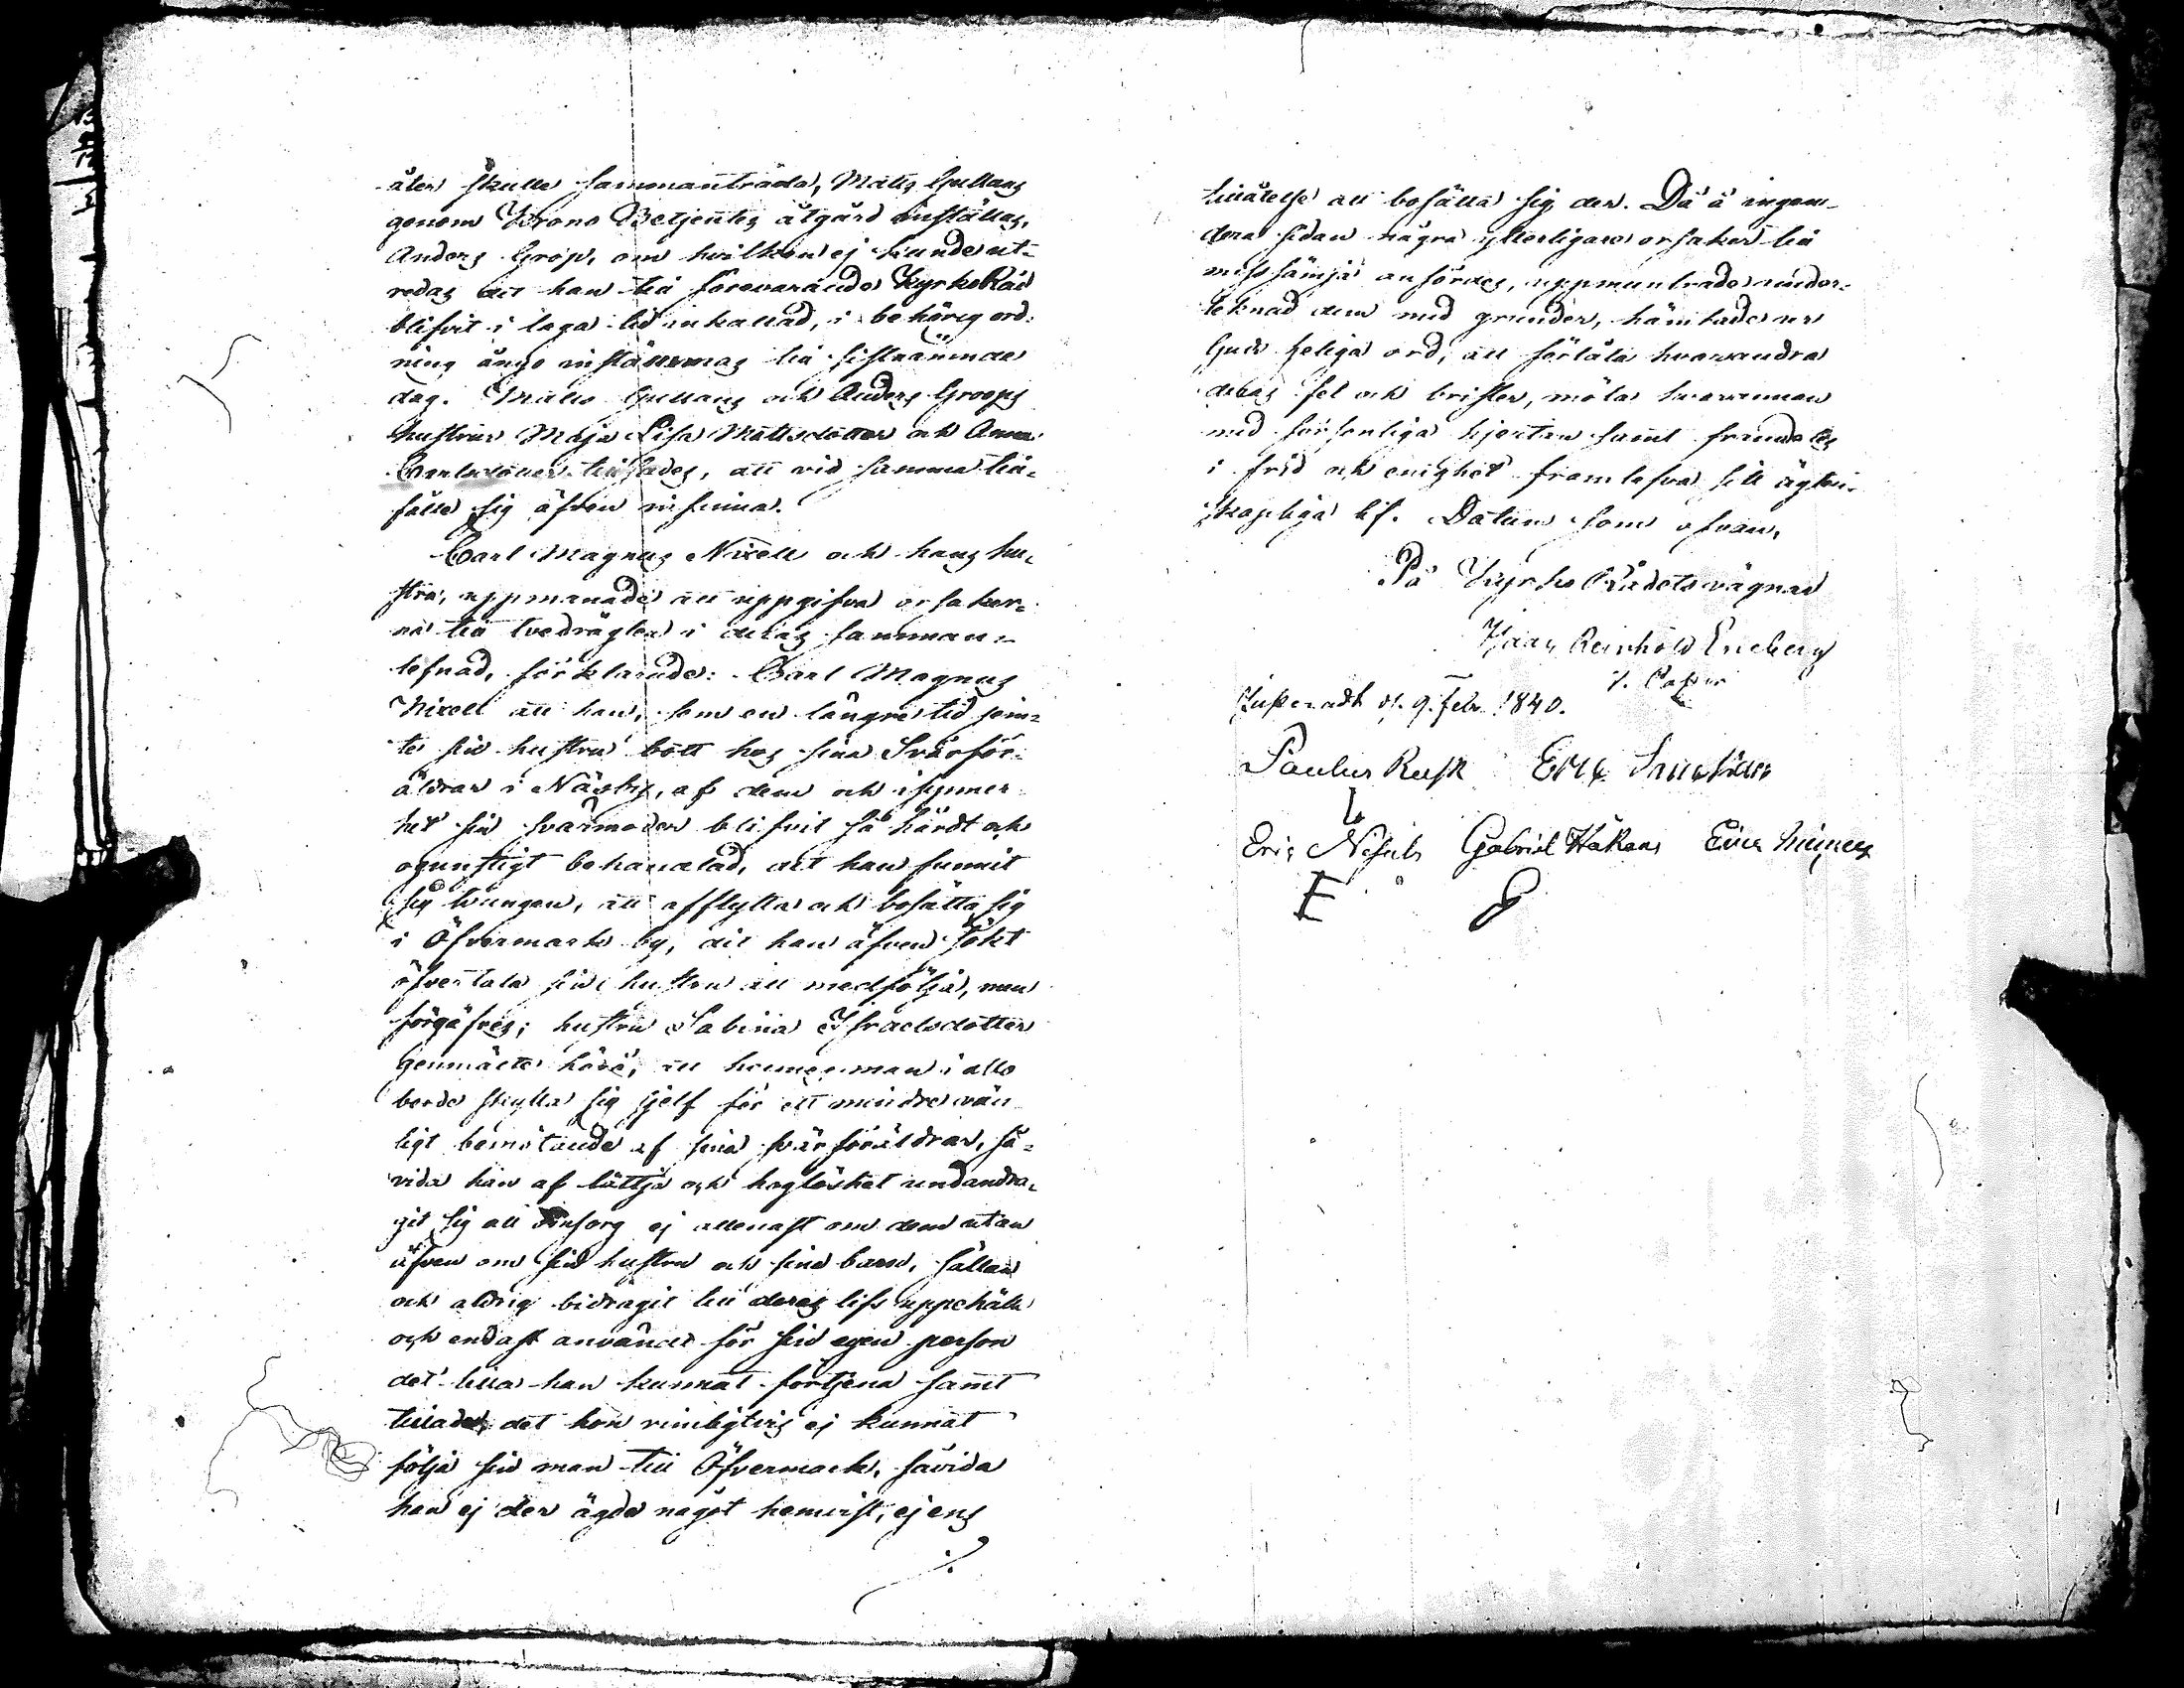 åter skulle sammanträda, Matts Gullans
genom Krono Betjentes åtgärd inställas,
Anders Grop, om hvilken ej kunde ut-
redas att han till förevarande KyrkoRåd
blifvit i laga tid inkallad, i behörig ord-
ning ånyo instämmas till sistnämnde
dag. Matts Gullans och Anders Groops
hustrur Maja Lisa Mattsdotter och Anna
Carlsdotter tillsades, att vid samma till-
fälle sig äfven infinna.
Carl Magnus Nixell och hans hu-
stru, uppmanade att uppgifva orsaker-
na till tvedrägten i deras samman-
lefnad, förklarade: Carl Magnus
Nixell att han, som en längre tid jem-
te sin hustru bott hos sina Svärför-
äldrar i Näsby, af dem och isynner-
het sin svärmoder blifvit så hårdt och
ogunstigt behandlad, att han funnit
sig tvungen, att afflytta och bosätta sig
i Öfvermark by, dit han äfven sökt
öfvertala sin hustru att medfölja, men
förgäfves; hustru Sabina Israelsdotter
Genmälte härå, att hennes man i allo
borde skylla sig sjelf för ett mindre vän-
ligt bemötande af sina svärföräldrar, så-
vida han af lättja och hoglöshet undandra-
git sig all omsorg ej allenast om dem utan
äfven om sin hustru och sina barn, sällan
och aldrig bidragit till deras lifs uppehälle
och endast användt för sin egen person
det lilla han kunnat förtjena samt
tillade, det hon rimligtvis ej kunnat
följa sin man till Öfvermark, såvida
han ej der ägde något hemvist, ej ens
./.
tillåtelse att bosätta sig der. Då å ingen-
dera sidan några ytterligare orsaker till
misssämja anfördes, uppmuntrade under-
teknad dem med grunder, hämtade ur
Guds heliga ord, att förlåta hvarandra
deras fel och brister, möta hvarannan
med försonliga hjertan samt framdeles
i frid och enighet framlefva sitt äkten-
skapliga lif. Datum som ofvan.
På Kyrko Rådets vägnar
Hans Reinhold Eneberg
V. Pastor
Justeradt d. 9. Febr. 1840.
Paulus Rusk Eric
Eric Nissils Gabriel Håkans Eric
E